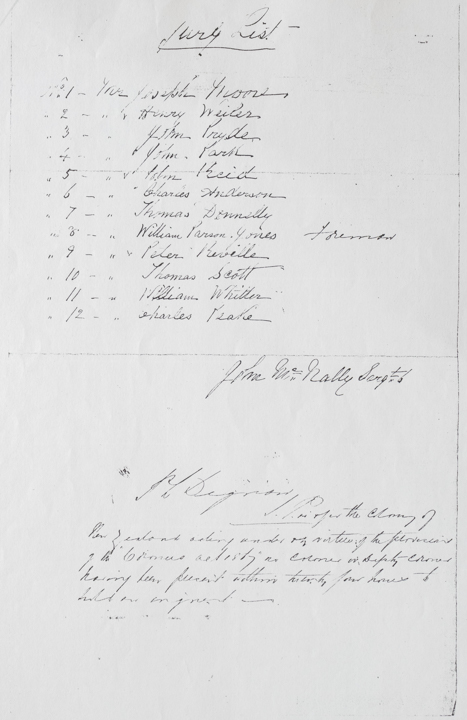 Jury List
No. 1 - Mr Joseph Moore
" 2 - " Henry Weiler
" 3 - " John Pryde
" 4 - " John Park
" 5 - " John Reid
" 6 - " Charles Anderson
" 7 - " Thomas Donnelly
" 8 - " William Parson Jones Foreman
" 9 - " Peter Neville
" 10 - " Thomas Scott
" 11 - " William Whitter
" 12 - " Charles
John McNally Sergt
J.P. for the Colony of
New Zealand acting under or by virtue of the provisions
of the Coroners act 1867 no Coroner or Deputy Coroner
having been present within twenty four hours to
hold an inquest